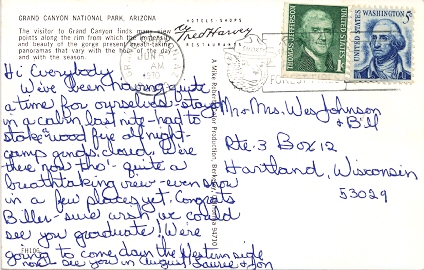 GRAND CANYON NATIONAL PARK, ARIZONA
The visitor to Grand Canyon finds many view
points along the rim from which the immensity
and beauty of the gorge present breath-taking
panoramas that vary with the hour of the day
and with the season.
HOTELS · SHOPS
Fred Harvey
RESTAURANTS
JUN
AM
THOMAS JEFFERSON
1¢
UNITED STATES
WASHINGTON 5¢
UNITED STATES
Hi Everybody
We've been having quite
a time for ourselves- stayed
in a cabin last nite- had to
stoke wood fire all night-
camp grnds. cloud. We're
there now tho'- quite a
breathtaking view- even snow
in a few places yet. Congrats
Biller- sure wish we could
see you graduate! We're
going to come down the Western side
now- see you in August, Laurie & Jon
Mr. + Mrs. Wes Johnson
+ Bill
Rte. 3 Box 12
Hartland, Wisconsin
53029
A Mike Roberts Color Production, Berkeley, California 94710
FH106